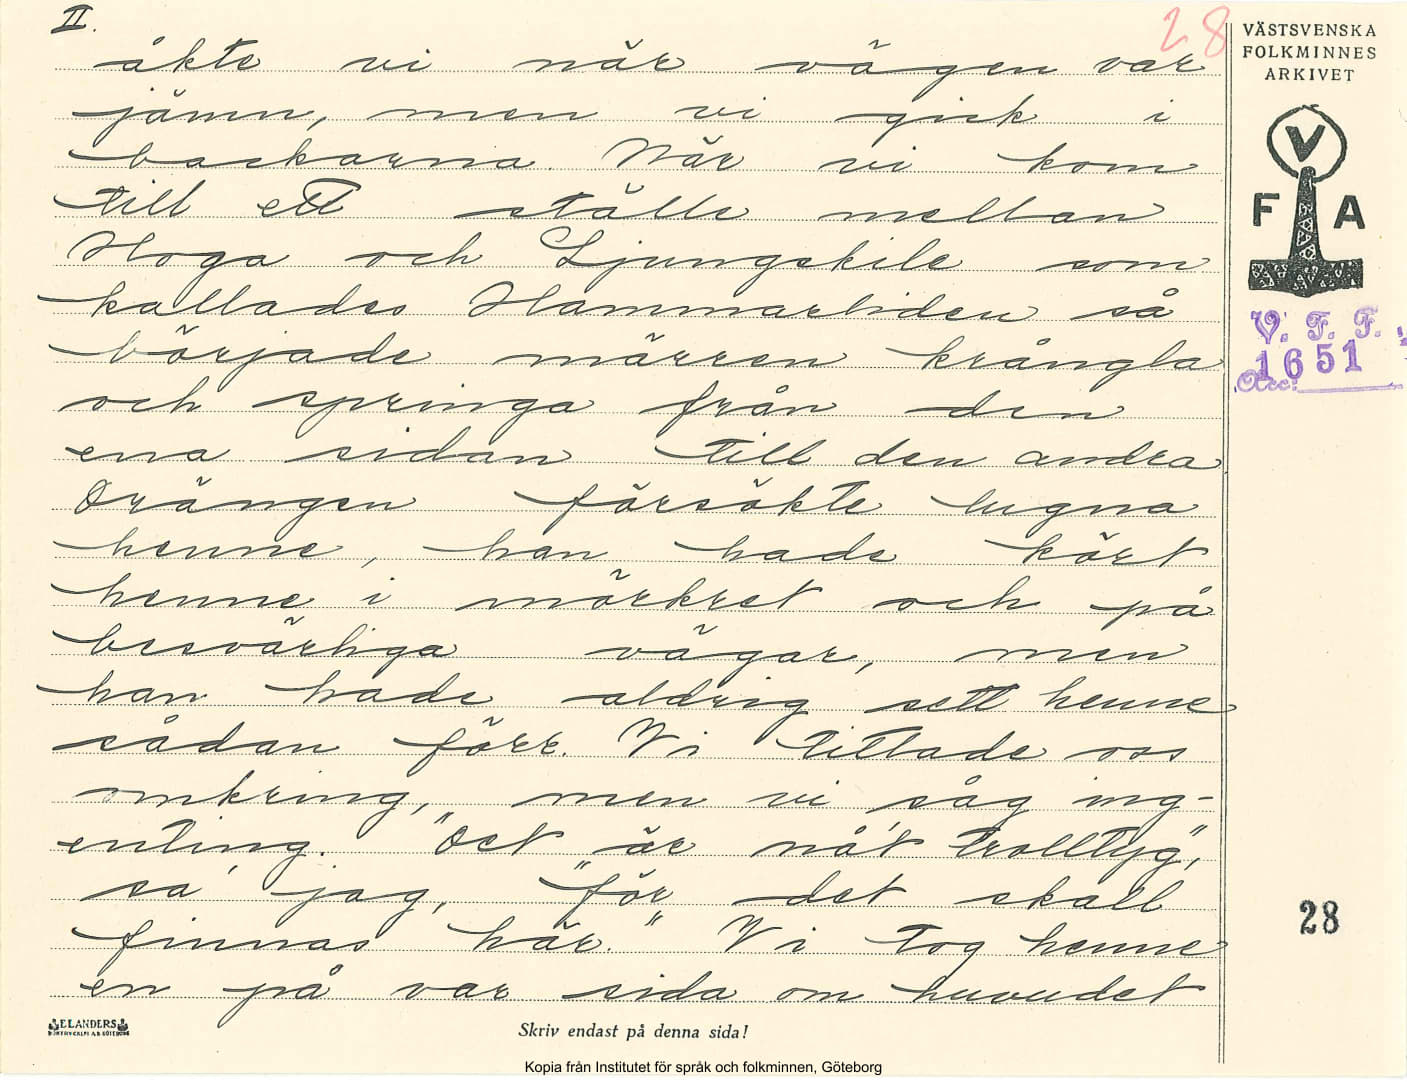 II.
28
åkte vi när vägen var
jämn, men vi gick i
backarna. När vi kom
till ett ställe mellan
Hoga och Ljungskile som
kallades Hammarliden så
började märren krångla
och springa från den
ena sidan till den andra
Drängen försökte lugna
henne, han hade kört
henne i mörkret och på
besvärliga vägar, men
han hade aldrig sett henne
sådan förr. Vi tittade oss
omkring, men vi såg ing-
enting. "Det är nå't trolltyg",
sa' jag, "för det skall
finnas här." Vi tog henne
en på var sida om huvudet
VÄSTSVENSKA
FOLKMINNES
ARKIVET
V
F A
V. F. F.
1651
Acc:
28
ELANDERS
Skriv endast på denna sida!
Kopia från Institutet för språk och folkminnen, Göteborg